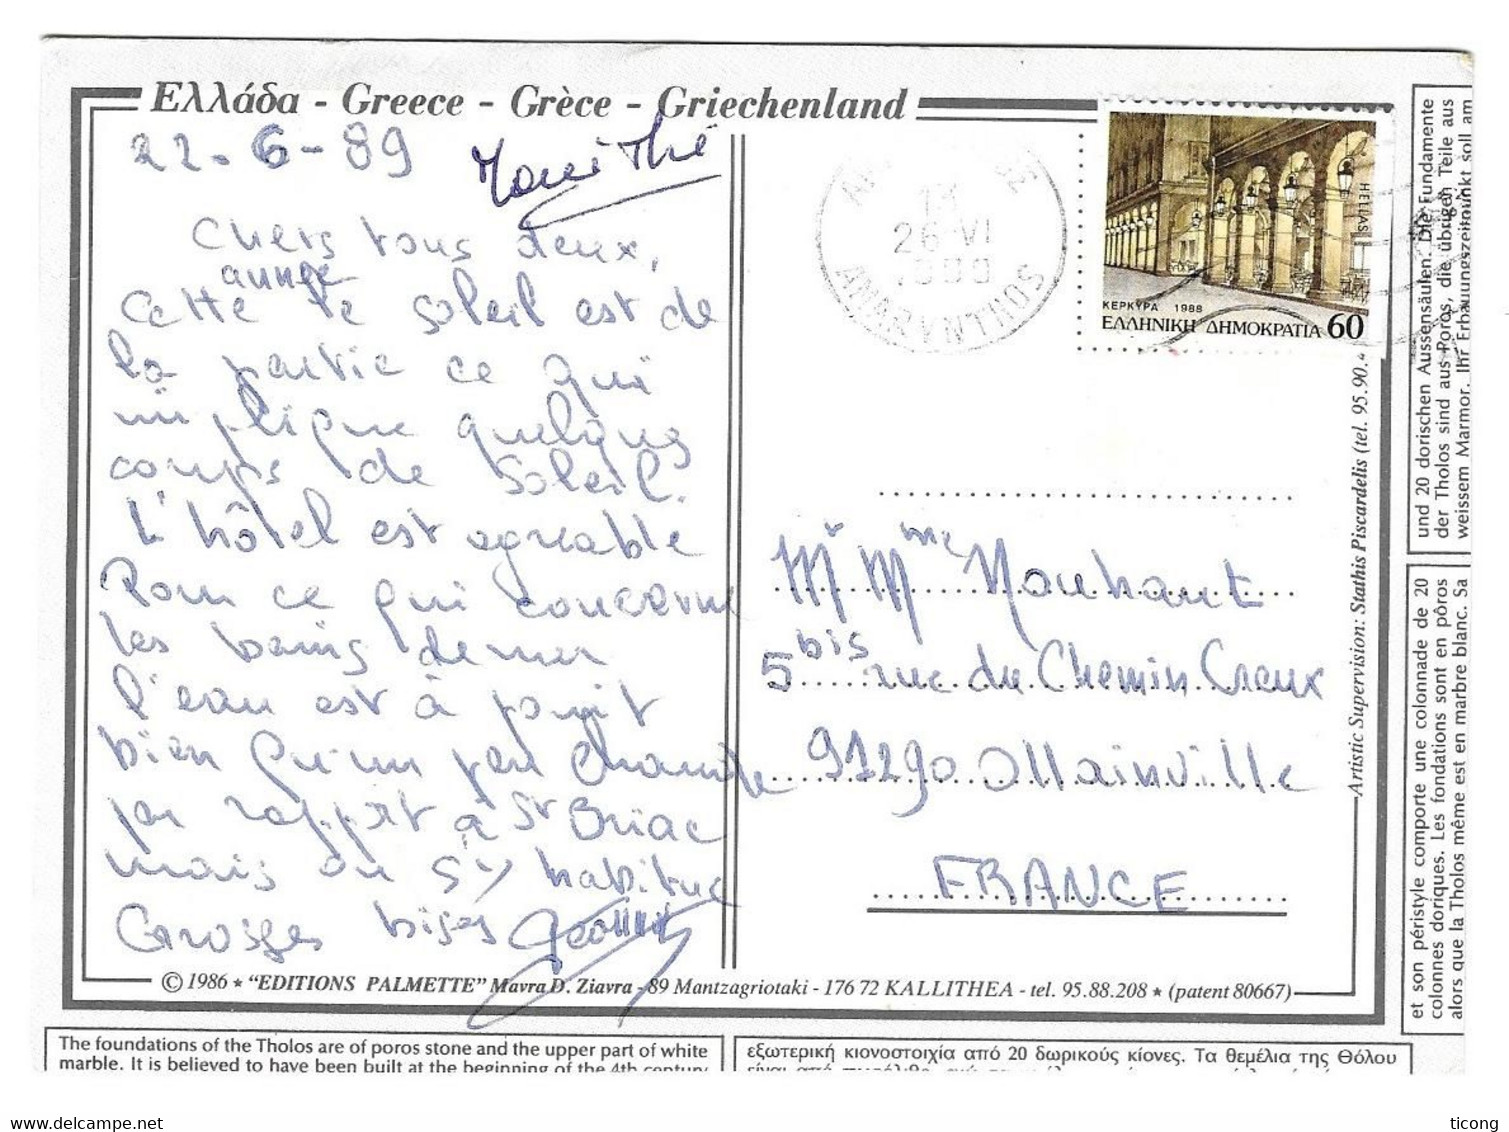 Ελλάδα - Greece - Grèce - Griechenland
22-6-89
Marithé
Chers tous deux,
Cette année le soleil est de
la partie ce qui
implique quelques
coups de soleil.
L'hôtel est agréable
Pour ce qui concerne
les bains de mer
l'eau est à point
bien qu'un peu chaude
par rapport à St Briac
mais on s'y habitue
Grosses bises
© 1986 ★ "EDITIONS PALMETTE" Mavra D. Ziavra - 89 Mantzagriotaki - 176 72 KALLITHEA - tel. 95.88.208 ★ (patent 80667)
26 VI
AMARYNTHOS
HELLAS
ΚΕΡΚΥΡΑ 1988
ΕΛΛΗΝΙΚΗ ΔΗΜΟΚΡΑΤΙΑ 60
Mr Mme Nouhant
5 bis rue du Chemin Creux
91290 Ollainville
FRANCE
Artistic Supervision: Stathis Piscardelis (tel. 95.90.4
und 20 dorischen Aussensäulen. Die Fundamente
der Tholos sind aus Poros, die übrigen Teile aus
weissem Marmor. Ihr Erbauungszeitpunkt soll am
et son péristyle comporte une colonnade de 20
colonnes doriques. Les fondations sont en pôros
alors que la Tholos même est en marbre blanc. Sa
The foundations of the Tholos are of poros stone and the upper part of white
marble. It is believed to have been built at the beginning of the 4th century
εξωτερική κιονοστοιχία από 20 δωρικούς κίονες. Τα θεμέλια της Θόλου
είναι από
www.delcampe.net
ticong